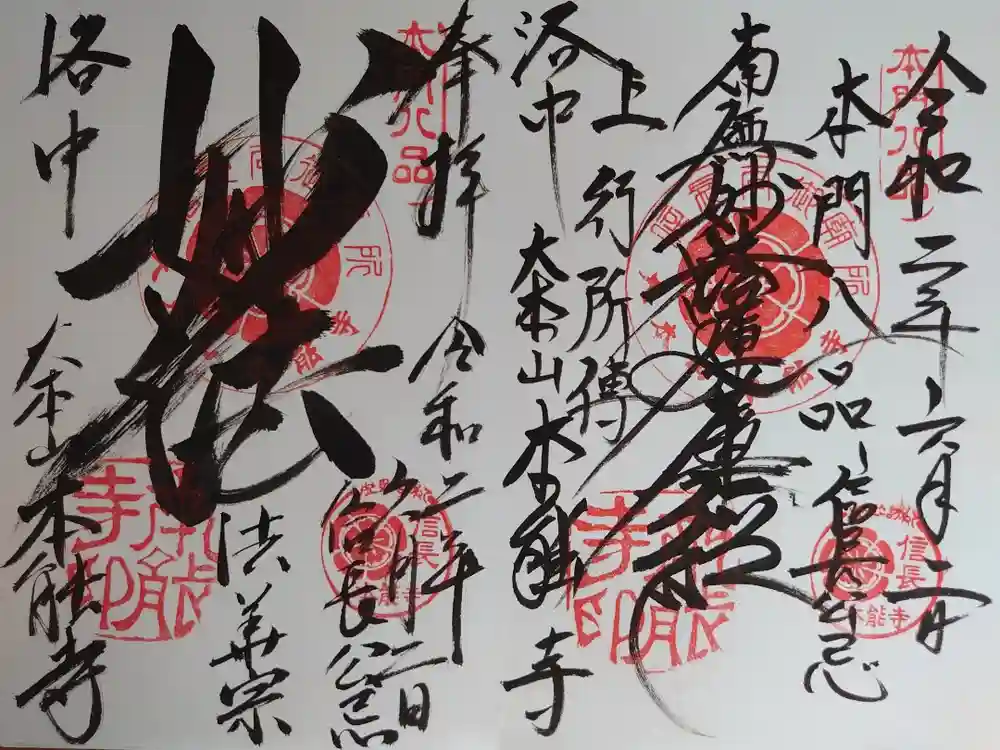 令和二年六月二日
本門八品
信長公忌
南無妙法蓮華経
上行所傳
洛中
大本山本能寺
本門八品
信長
本能寺
奉拝
令和二年六月二日
信長公忌
法華宗
洛中
大本山本能寺
信長